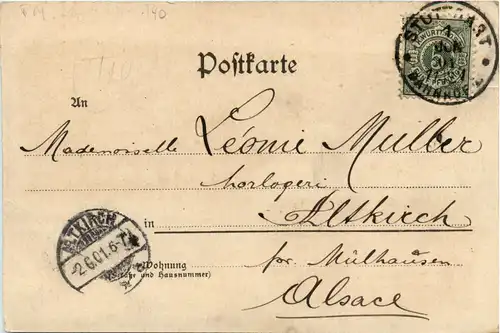 Postkarte
STUTTGART
1 JUN
BAHNHOF
An
Mademoiselle Léonie Müller
horlogeri
in Altkirch
ALTKIRCH
2.6.01.6-7
Wohnung
(Straße und Hausnummer)
par Mülhausen
Alsace